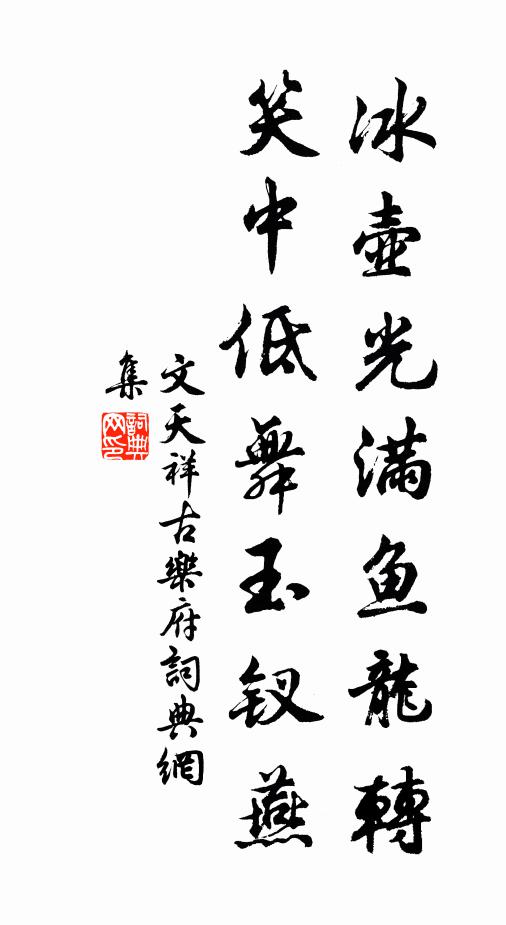 冰壺光满鱼龍轉
笑中低舞玉钗燕
文天祥古樂府詞典網
集
詞典网印